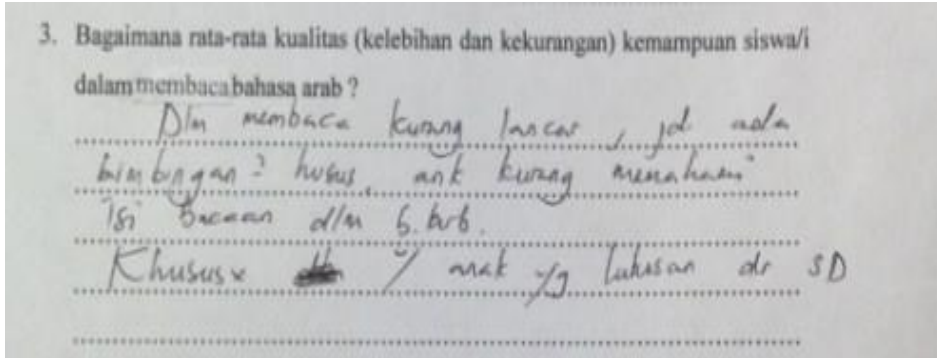 3. Bagaimana rata-rata kualitas (kelebihan dan kekurangan) kemampuan siswa/i
dalam membaca bahasa arab ?
Dlm membaca kurang lancar, jd ada
bimbingan² husus, ank kurang memahami
isi bacaan dlm b. Arb.
Khususx y/ anak yg luhusan dr SD